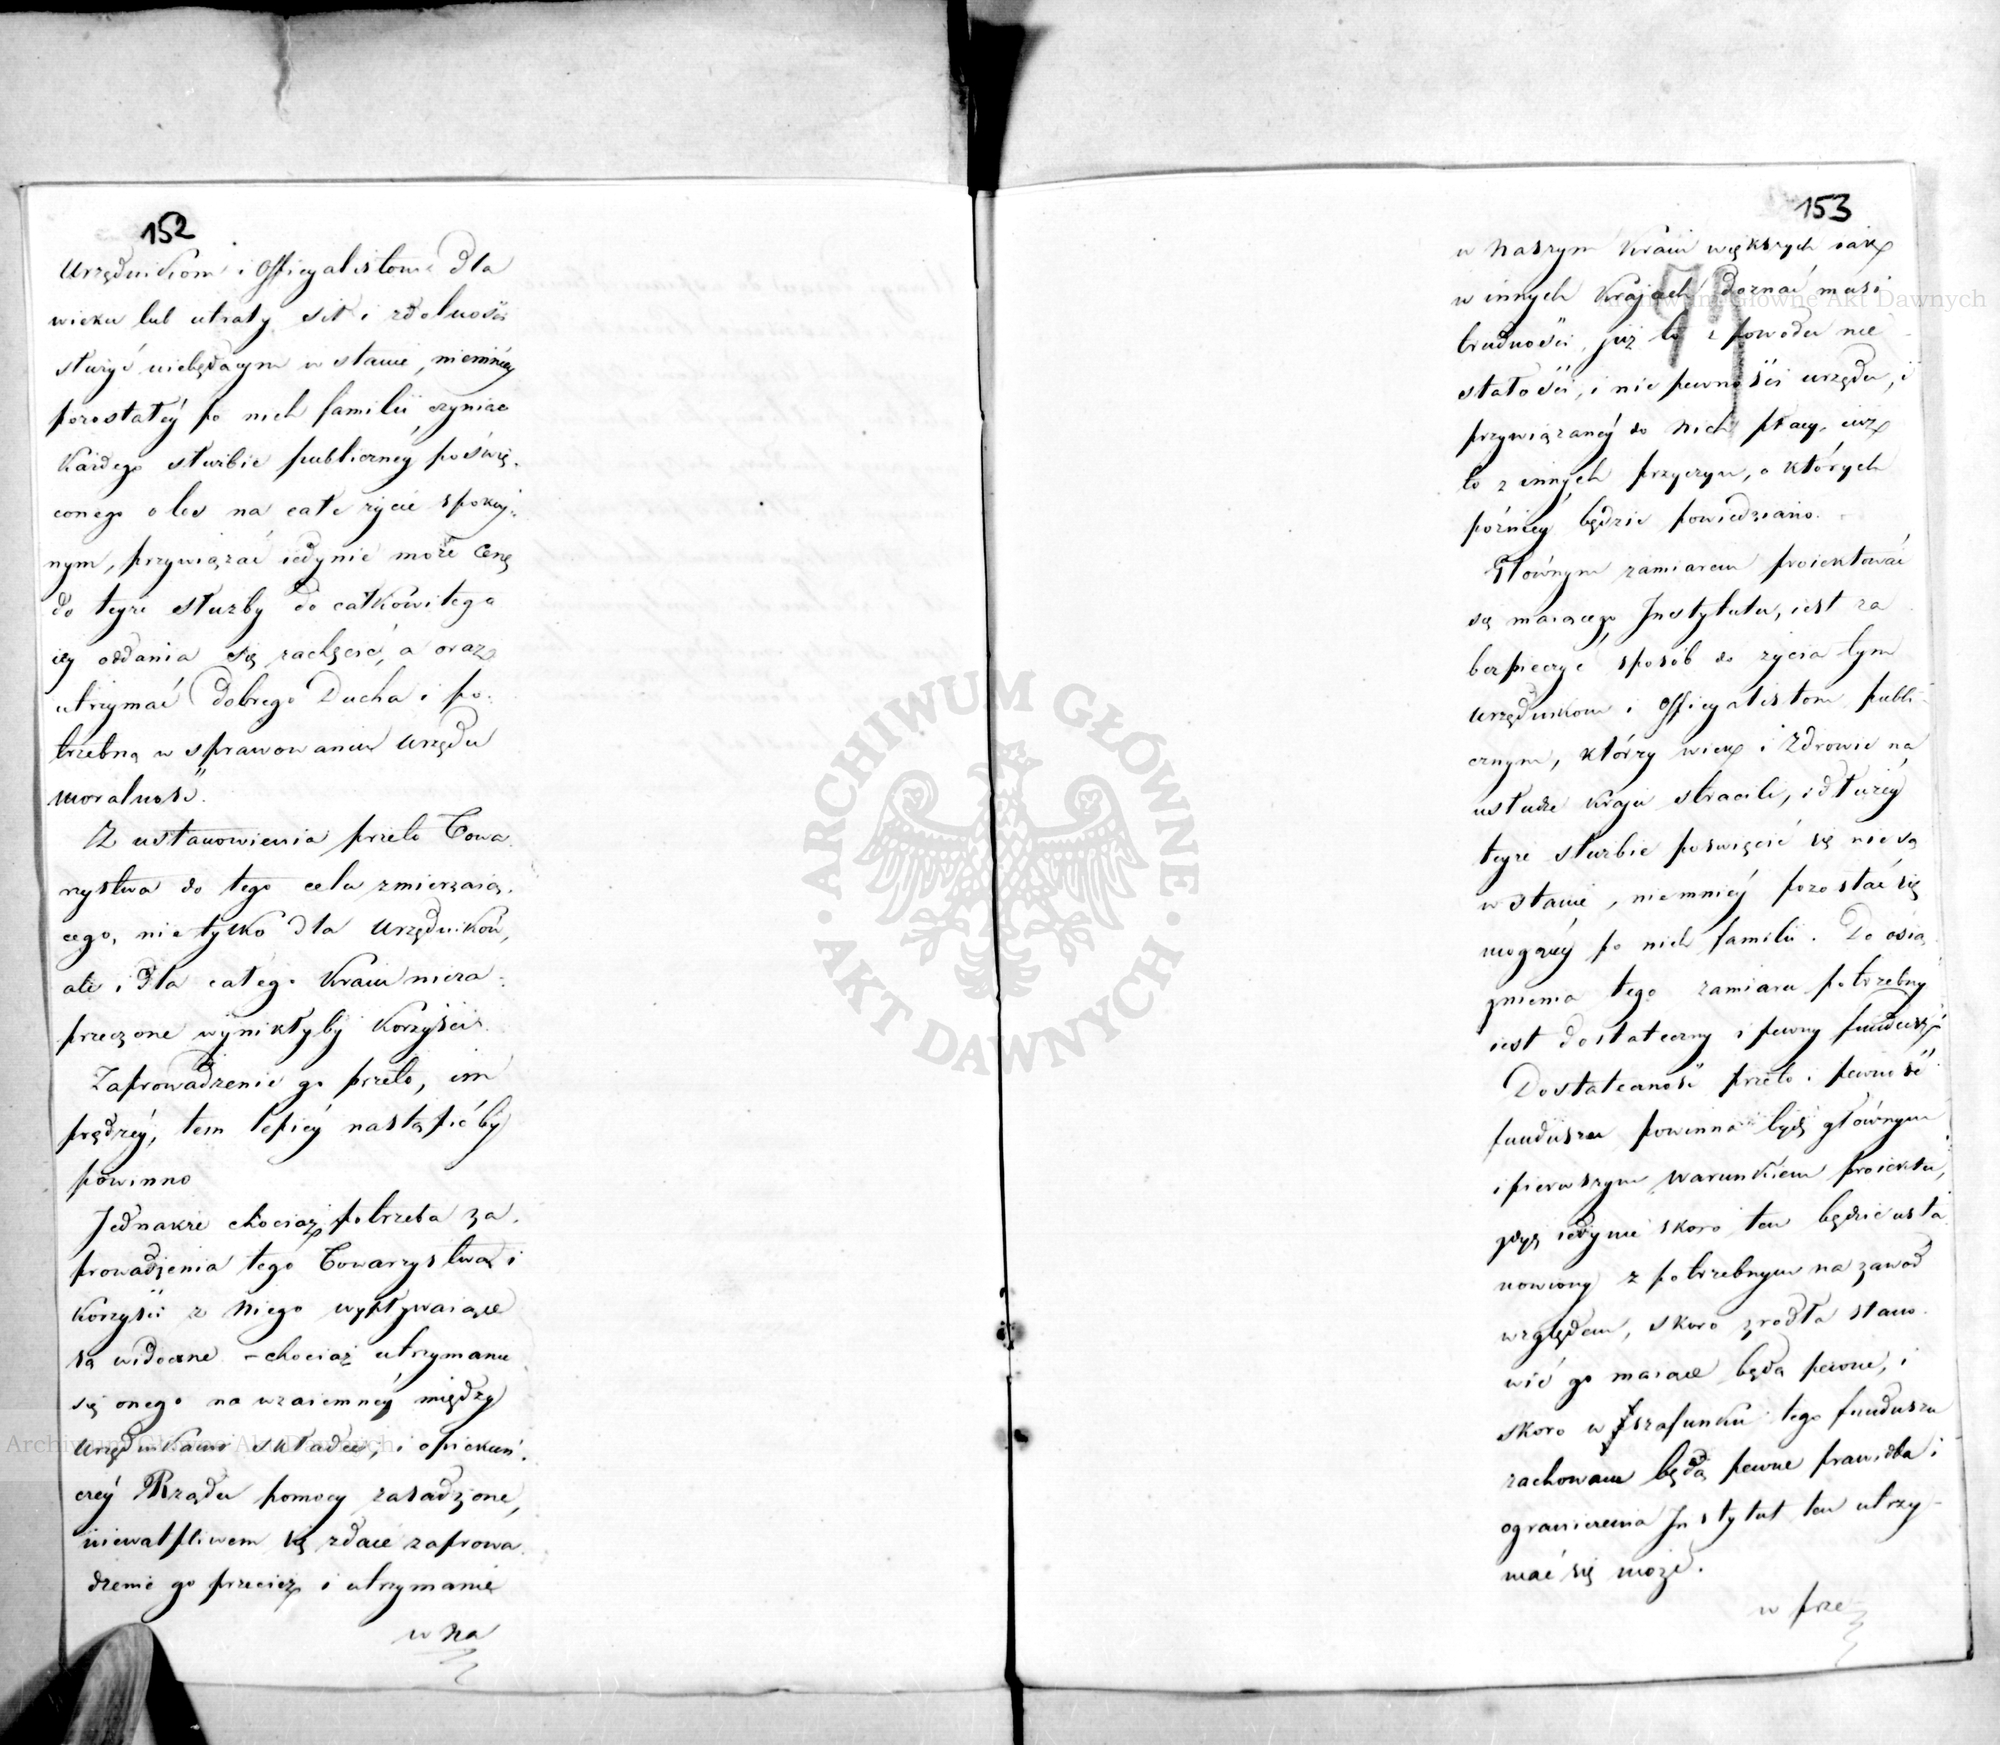 152
Urzędnikom i Officyalistom dla
wieku lub utraty sił i zdolności
służyć niebędącym w stanie, niemniéy
pozostałéy po nich familii, czyniąc
każdego służbie publicznéy poświę-
conego o los na całe życie spokoy-
nym, przywiązać iedynie może Cenę
do teyże służby do całkowitego
iéy oddania się zachęcić, a oraz
utrzymać Dobrego Ducha i po-
trzebną w sprawowaniu Urzędu
moralność.
Z ustanowienia przeto Towa-
rzystwa do tego celu zmierzaią-
cego, nietylko dla Urzędników,
ale i dla całego Kraiu nieza-
przeczone wynikłyby Korzyści.
Zaprowadzenie go przeto, im
prędzéy, tem lepiéy nastąpićby
powinno
Jednakże chociaż potrzeba za-
prowadzenia tego Towarzystwa i
Korzyści z Niego wypływaiące
są widoczne – chociaż utrzymanie
się onego na wzaiemnéy między
Urzędnikami składce, i opiekuń-
czéy Rządu pomocy zasadzone,
niewątpliwem się zdaie zaprowa-
dzenie go przecież i utrzymanie
w na
153
w Naszym Kraiu większych iak
w innych Krajach doznać musi
trudności, już to z powodu nie
stałości, i nie pewności urzędu, i
przywiązanéy do Nich płacy, iuż
to z innych przyczyn, o których
późniéy będzie powiedziano.
Głównym zamiarem proiektować
się maiącego Instytutu, iest za
bezpieczyć sposób do życia tym
Urzędnikom i Officyalistom publi-
cznym, którzy wiek i Zdrowie na
usłudze Kraju stracili, i dłużéy
teyże służbie poświęcić się nie są
w stanie, niemniéy pozostać się
mogącéy po nich familii. Do osią
gnienia tego zamiaru potrzebny
iest dostateczny i pewny fundusz
Dostateczność przeto i pewność
funduszu powinna bydź głównym
i pierwszym warunkiem proiektu,
gdyż iedynie skoro ten będzie usta
nowiony z potrzebnym na zawód
względem, skoro zrodła stano-
wić go maiące będą pewne, i
skoro w szafunku tego funduszu
zachowane będą pewne prawidła i
ograniczenia Instytut ten utrzy-
mać się może.
w prze